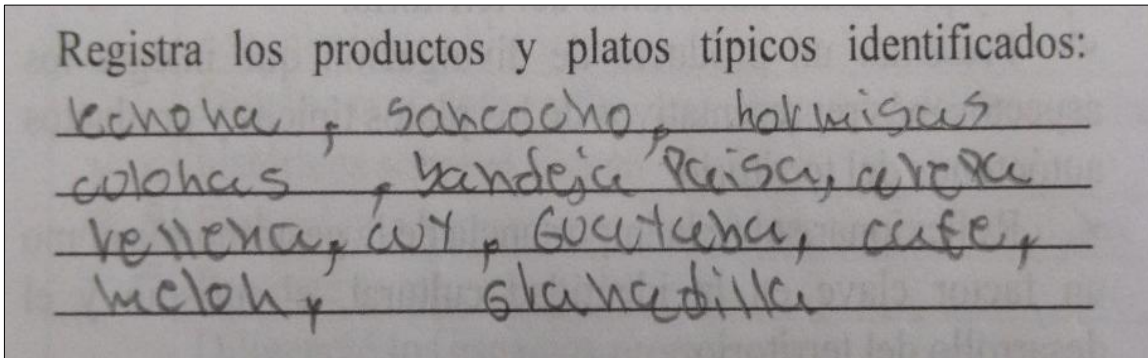 Registra los productos y platos típicos identificados:
lechona, sancocho, hormigas
colonas, bandeja Paisa, arepa
rellena, cuy, Guayaba, cafe,
melon, Granadilla